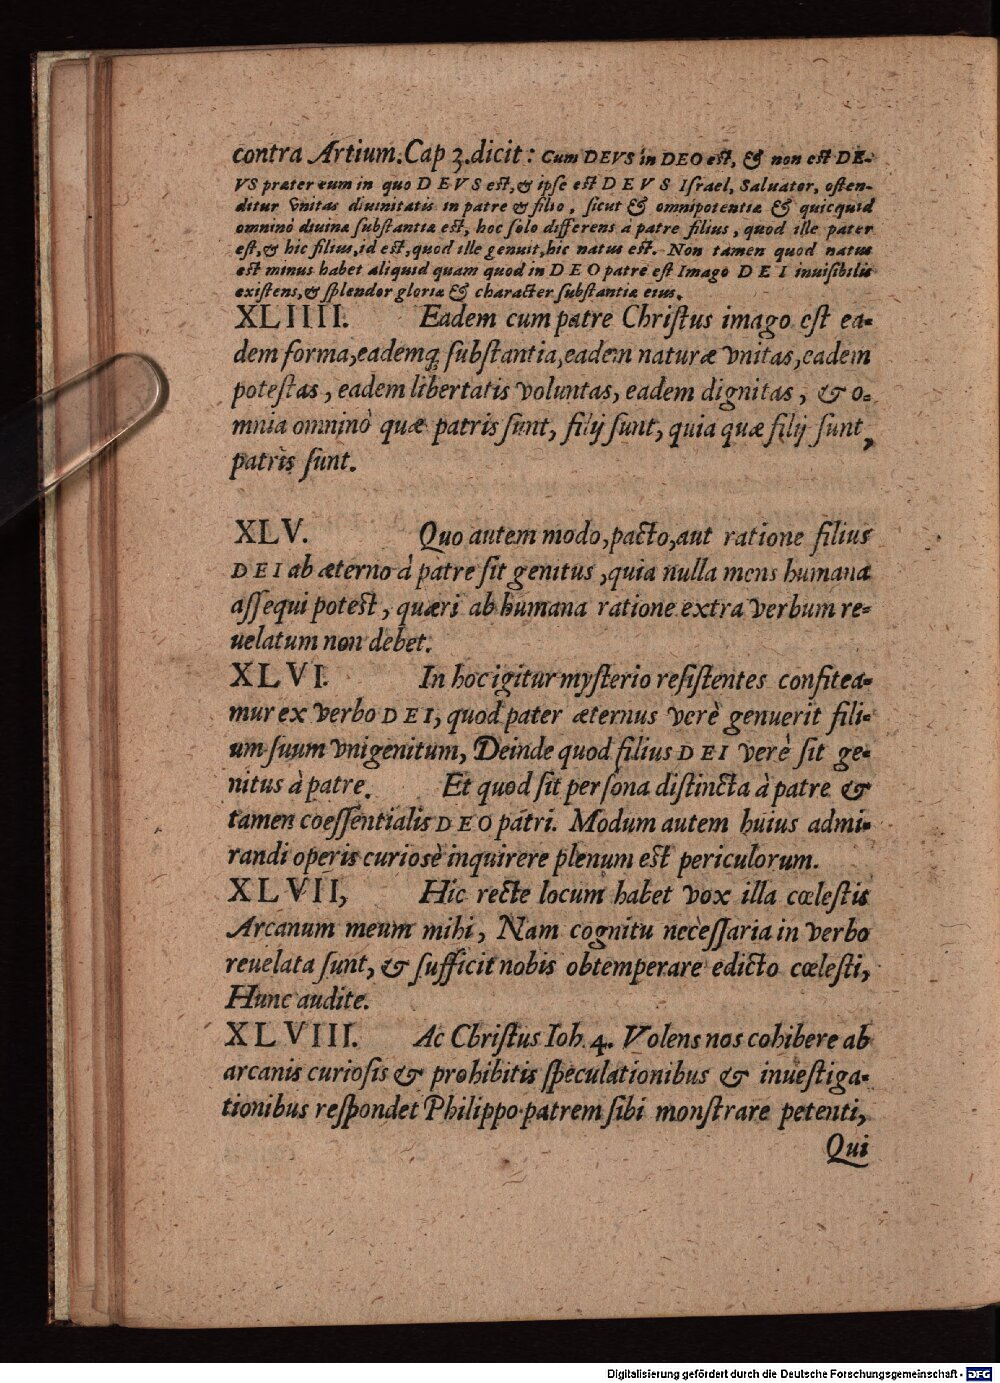 contra Artium. Cap 3. dicit: Cum DEVS in DEO est, & non est DE-
VS præter eum in quo DEVS est, & ipse est DEVS Israel, Saluator, osten-
ditur vnitas diuinitatis in patre & filio, sicut & omnipotentia & quicquid
omninò diuinæ substantiæ est, hoc solo differens à patre filius, quod ille pater
est, & hic filius, id est, quod ille genuit, hic natus est. Non tamen quod natus
est minus habet aliquid quam quod in DEO patre est Imago DEI inuisibilis
existens, & splendor gloriæ & character substantiæ eius.
XLIIII. Eadem cum patre Christus imago est ea-
dem forma, eademq; substantia, eadem naturæ vnitas, eadem
potestas, eadem libertatis voluntas, eadem dignitas, & o-
mnia omninò quæ patris sunt, filij sunt, quia quæ filij sunt,
patris sunt.
XLV. Quo autem modo, pacto, aut ratione filius
DEI ab æterno à patre sit genitus, quia nulla mens humana
assequi potest, quæri ab humana ratione extra verbum re-
uelatum non debet.
XLVI. In hoc igitur mysterio resistentes confitea-
mur ex verbo DEI, quod pater æternus verè genuerit fili-
um suum vnigenitum, Deinde quod filius DEI verè sit ge-
nitus à patre. Et quod sit persona distincta à patre &
tamen coessentialis DEO patri. Modum autem huius admi-
randi operis curiosè inquirere plenum est periculorum.
XLVII, Hic recte locum habet vox illa cœlestis
Arcanum meum mihi, Nam cognitu necessaria in verbo
reuelata sunt, & sufficit nobis obtemperare edicto cœlesti,
Hunc audite.
XLVIII. Ac Christus Ioh. 4. Volens nos cohibere ab
arcanis curiosis & prohibitis speculationibus & inuestiga-
tionibus respondet Philippo patrem sibi monstrare petenti,
Qui
Digitalisierung gefördert durch die Deutsche Forschungsgemeinschaft - DFG